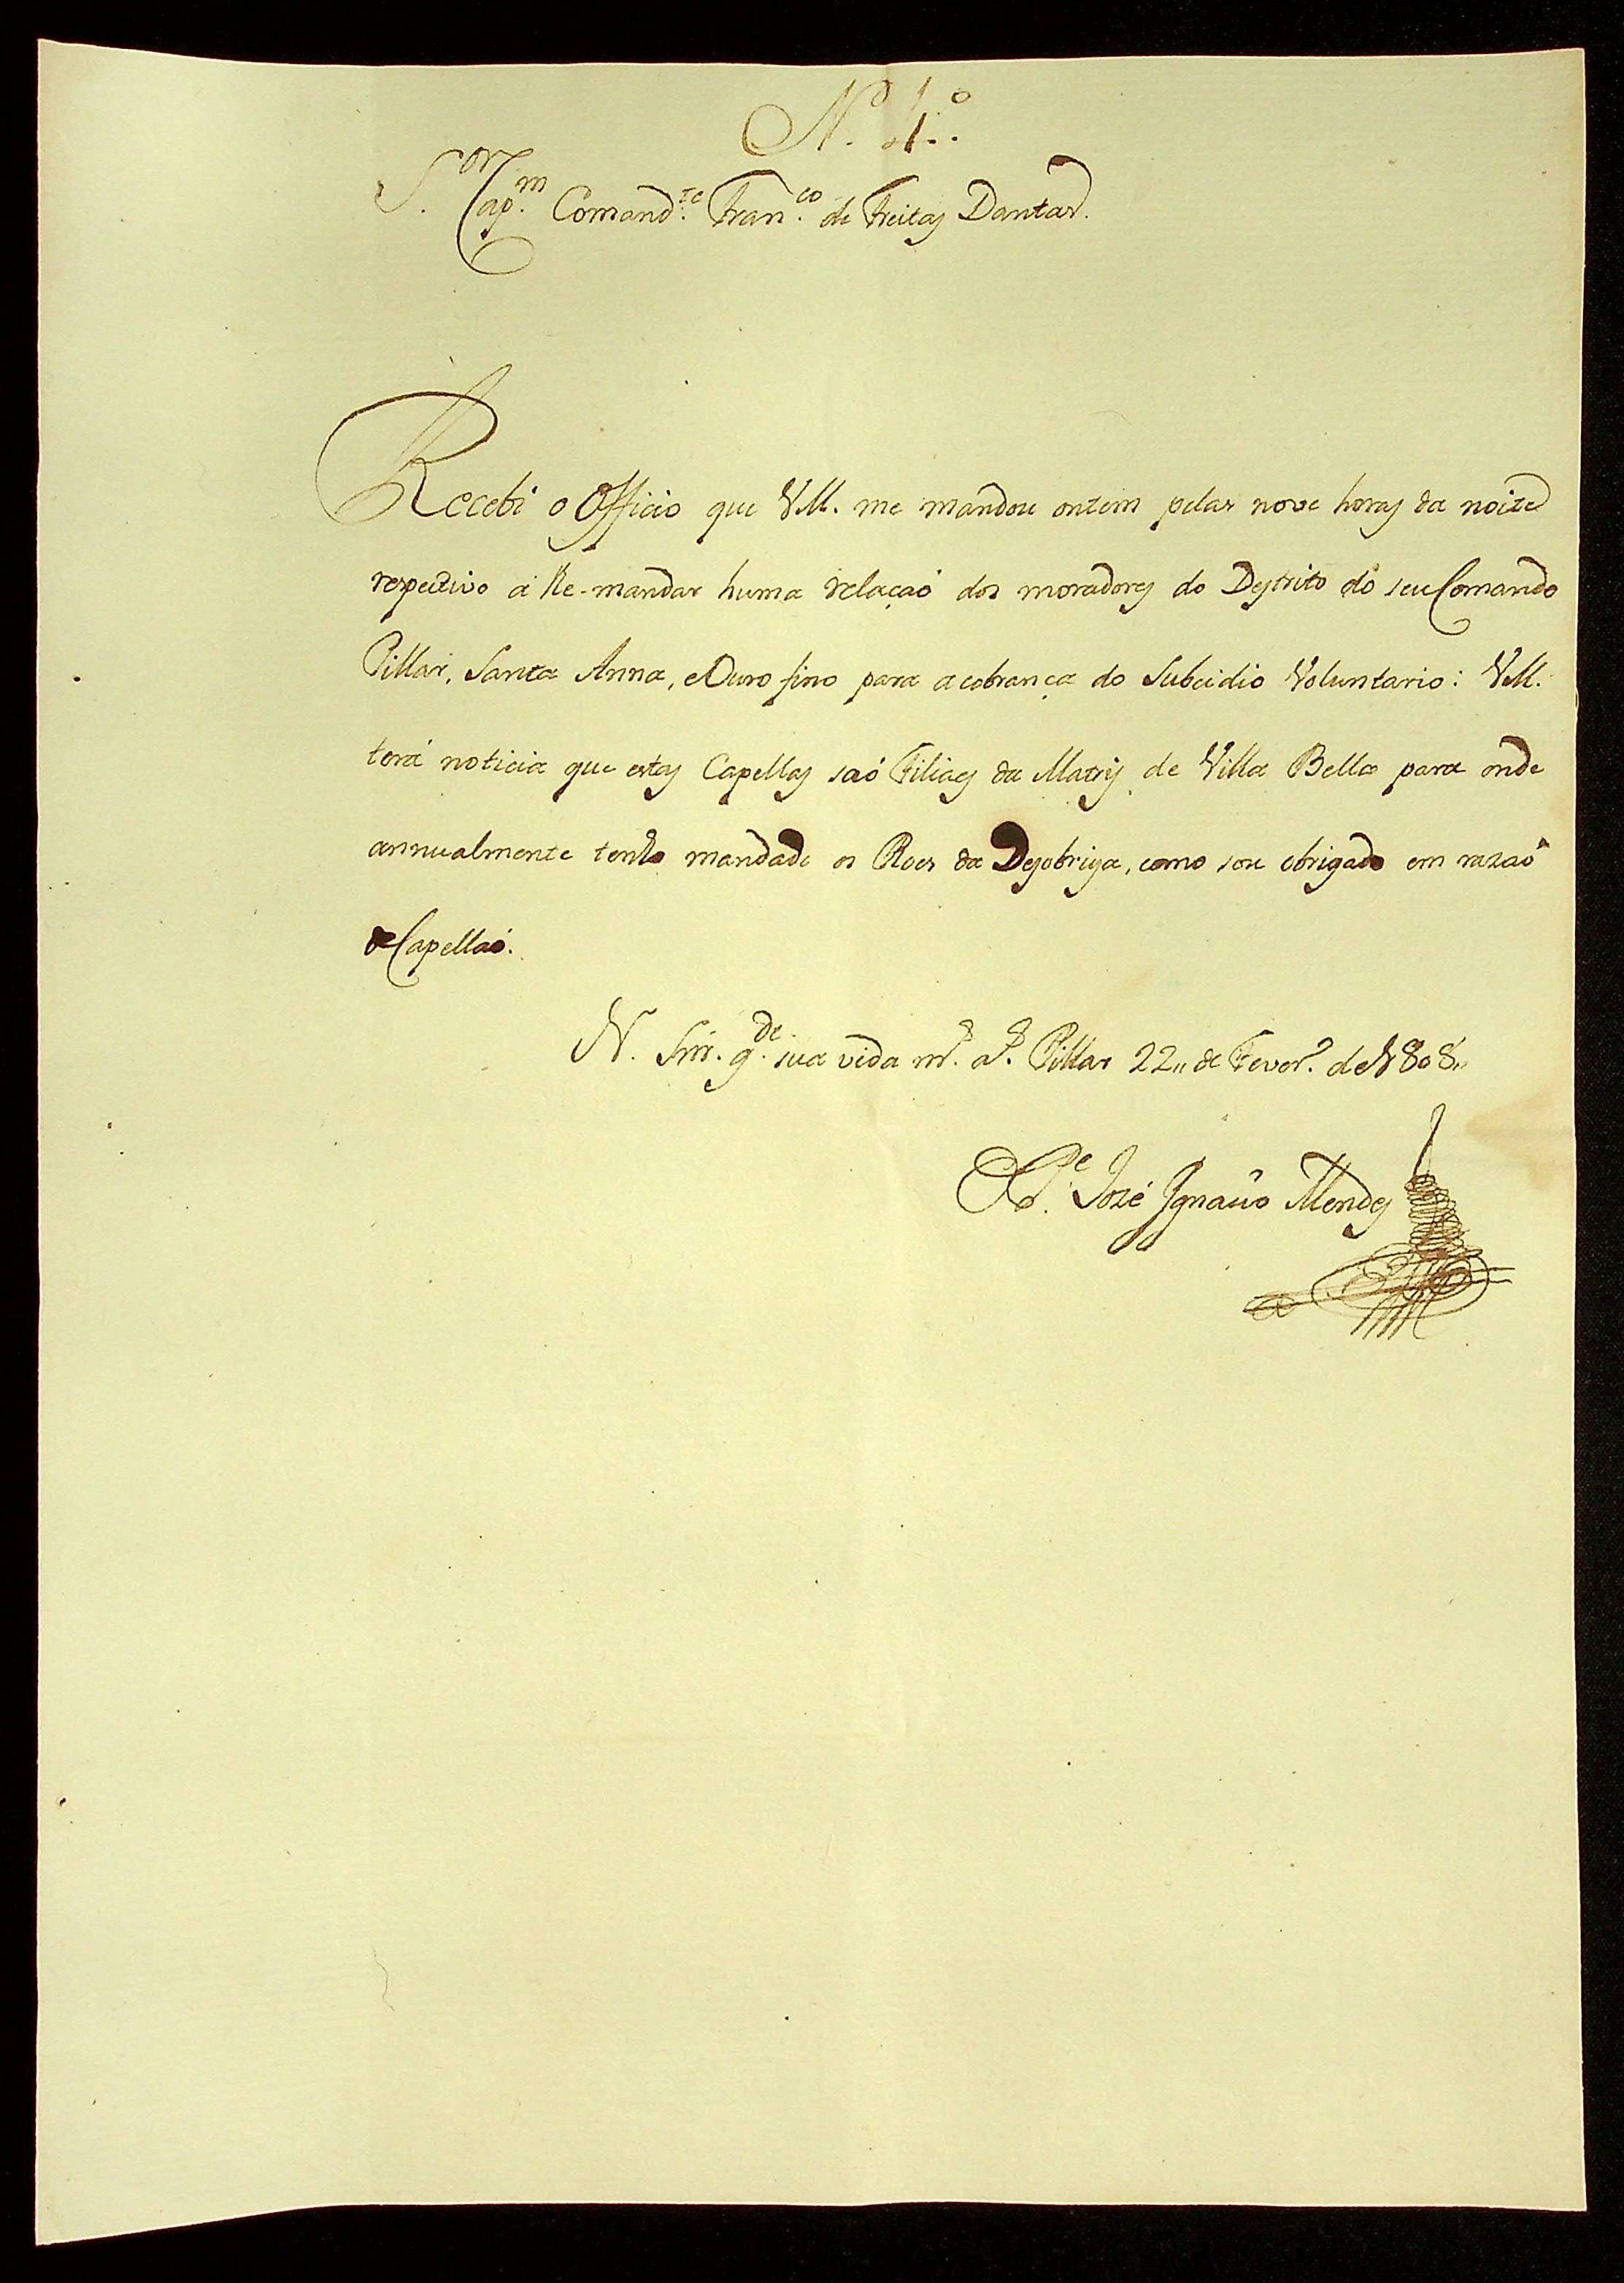 N. 1.º
S.or Cap.m Comand.te Fran.co de Freitas Dantas.
Recebi o Officio que VM. me mandou ontem pelas nove horas da noite
respectivo a Re-mandar huma relaçaó dos moradores do Destrito do seu Comando
Pillar, Santa Anna, e Ouro fino para a cobrança do Subcidio Voluntario: VM.
terá noticia que estas Capellas saó Filiaes da Matris de Villa Bella para onde
annualmente tenho mandado os Roes da Desobriga, como sou obrigado em razaó
de Capellaó.
N. Snr. g.de sua vida m.s a.s Pillar 22,, de Fever.º de 1808,,
O P.e José Ignacio Mendes